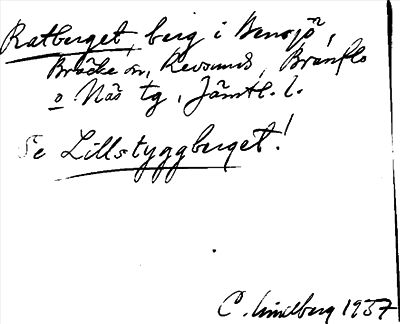 Ratberget, berg i Bensjö,
Bräcke sn, Revsunds, Brunflo
o Näs tg, Jämtl. l.
Se Lillstyggberget!
C. Lindberg 1957